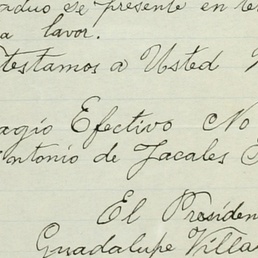 aduo se presente en te
a lavor.
testamos a Usted
agio Efectivo No
Antonio de Jacales
El Presiden
Guadalupe Villa